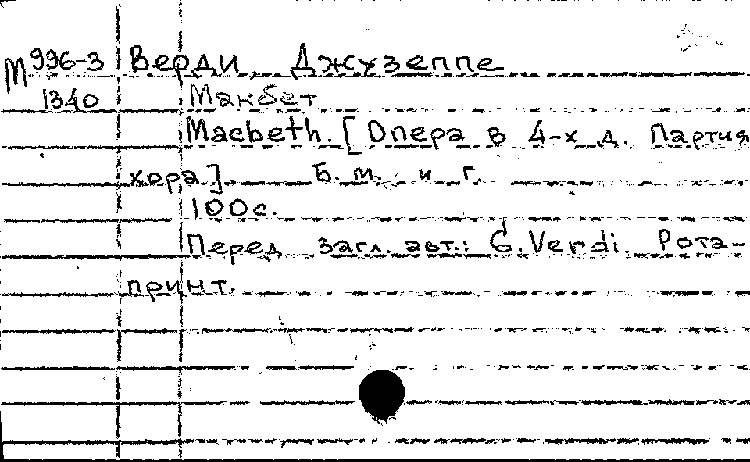 М 996-3 Верди, Джузеппе
1340 Макбет
Macbeth. [Опера в 4-х д. Партия
хора]. Б. м. и г.
100с.
Перед загл. авт.: G. Verdi. Рота-
принт.